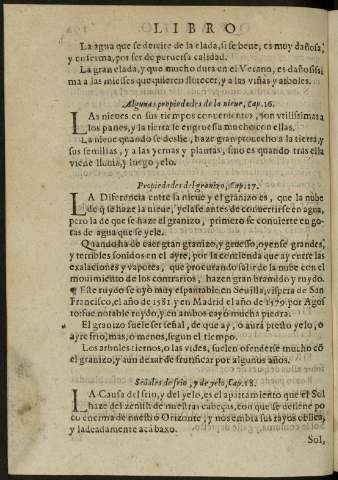 LIBRO
La agua que se derrite de la elada, si se beue, es muy dañosa,
y enferma, por ser de peruersa calidad.
La gran elada, y que mucho dura en el Verano, es dañosissi
ma a las miesses que quieren florecer, y a las viñas y arboles.
Algunas propiedades de la nieue, Cap. 16.
LAS nieues en sus tiempos conuenientes, son vtilissimas a
los panes, y la tierra se engruessa mucho con ellas.
La nieue quando se deslie, haze gran prouecho a la tierra, y
sus semillas, y a las yeruas y plantas, sino es quando tras ella
viene lluuia, y luego yelo.
Propiedades del granizo, Cap. 17.
LA Diferencia entre la nieue y el granizo es, que la nube
de q̃ se haze la nieue, yela se antes de conuertirse en agua,
pero la de que se haze el granizo, primero se conuierte en go-
tas de agua que se yele.
Quando ha de caer gran granizo, y gruesso, oyense grandes,
y terribles sonidos en el ayre, por la contienda que ay entre las
exalaciones y vapores, que procurando salir de la nube con el
mouimiento de los contrarios, hazen gran bramido y ruydo.
¶ Este ruydo se oyò muy espantable en Seuilla, vispera de San
Francisco, el año de 1581. y en Madrid el año de 1579. por Agos
to: fue notable ruydo, y en ambos cayò mucha piedra.
El granizo suele ser señal, de que ay, o aurà presto yelo, o
ayre frio, mas, o menos, segun el tiempo.
Los arboles tiernos, o las vides, suelen ofenderse mucho cõ
el granizo, y aun dexar de frutificar por algunos años.
Señales de frio, y de yelo, Cap. 18.
LA Causa del frio, y del yelo, es el apartamiento que el Sol
haze del zenith de nuestras cabeças, con que se detiene po
co encima de nuestro Orizonte, y nos embia sus rayos obliqua,
y ladeadamente acà baxo.
Sol,